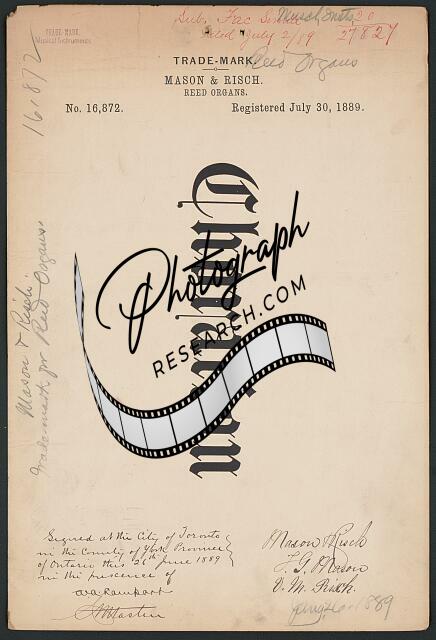 TRADE-MARK.
Musical Instruments
Sub. Fac Simile
filed July 2/89
Musicl Insts, 20
27827
Reed Organs
16,872
TRADE-MARK.
MASON & RISCH.
REED ORGANS.
No. 16,872.
Registered July 30, 1889.
Photograph
RESEARCH.COM
Mason & Risch.
Trade-mark for Reed Organs.
Signed at the City of Toronto
in the County of York Province
of Ontario this 26th June 1889
in the presence of
Mason & Risch
T. G. Mason
V. M. Risch.
1889